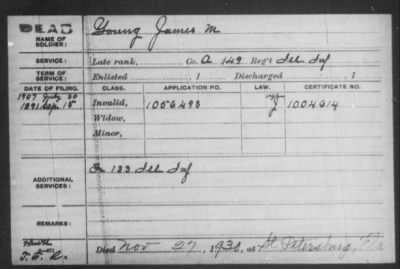 DEAD
NAME OF SOLDIER: Young James M
SERVICE: Late rank, Co. A 149 Reg't Ill Inf
TERM OF SERVICE: Enlisted , 1 Discharged , 1
DATE OF FILING. CLASS. APPLICATION NO. LAW. CERTIFICATE NO.
1907 July 20
1891 Sep 15 Invalid, 1056493 1004614
Widow,
Minor,
ADDITIONAL SERVICES: 133 Ill Inf
REMARKS:
Died Nov 27, 1930, at St Petersburg, Fla